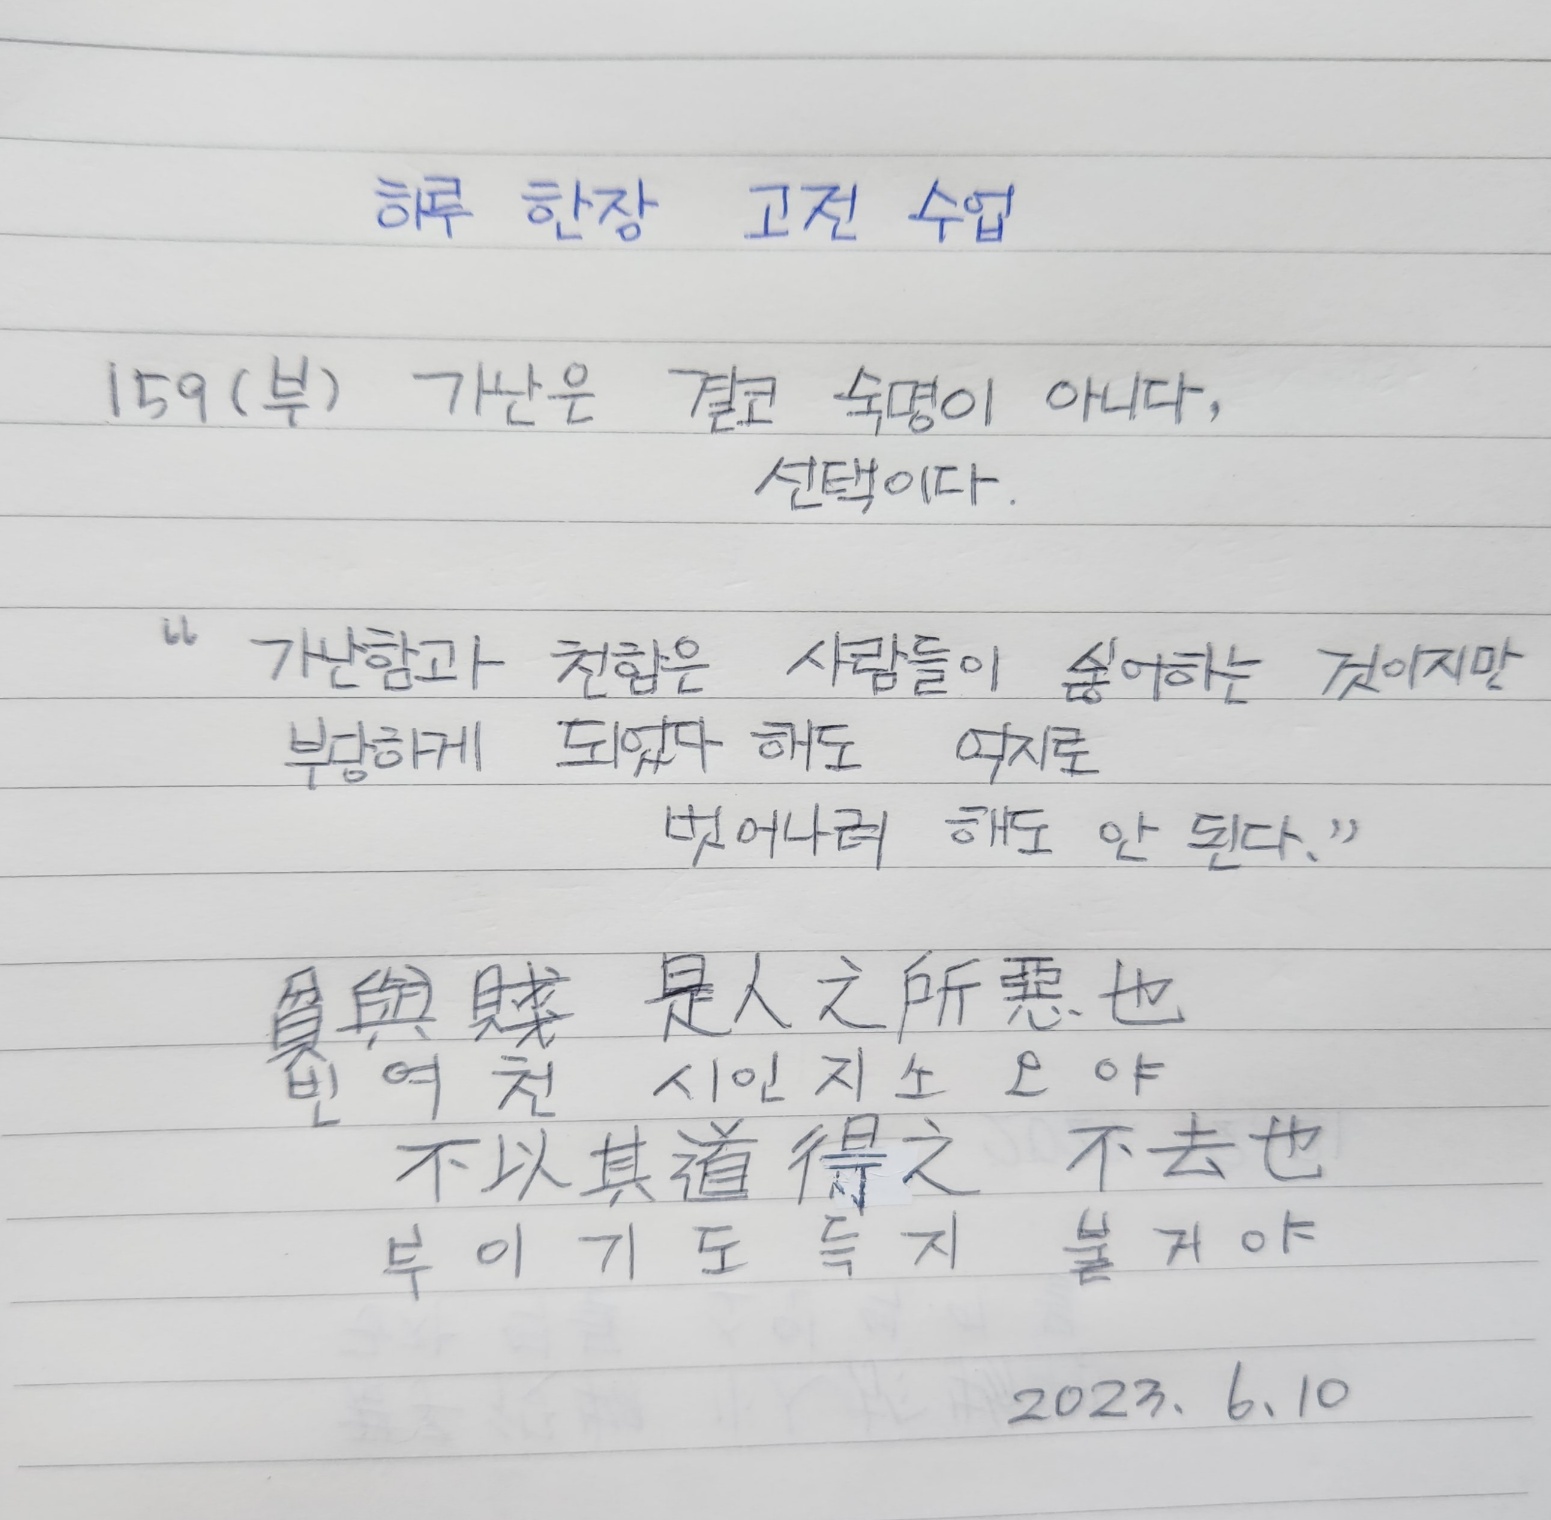 하루 한장 고전 수업
159(부) 가난은 결코 숙명이 아니다,
선택이다.
“ 가난함과 천함은 사람들이 싫어하는 것이지만
부당하게 되었다 해도 억지로
벗어나려 해도 안 된다.”
貧與賤 是人之所惡也
빈 여 천 시인지소오야
不以其道得之 不去也
부이기도득지 불거야
2023. 6. 10